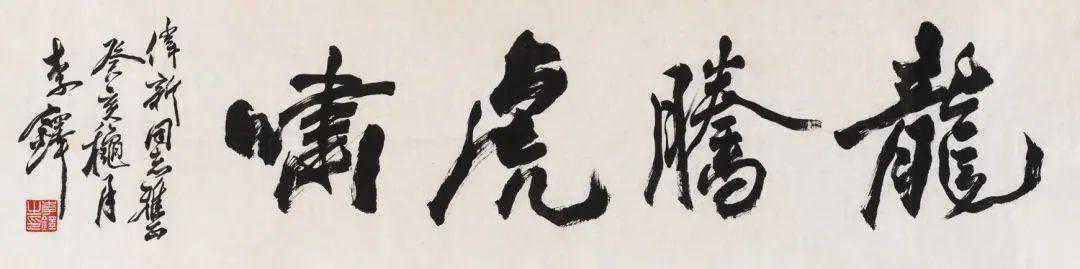 龍騰虎嘯
偉新同志雅正
癸亥穐月
李鐸
李鐸之印